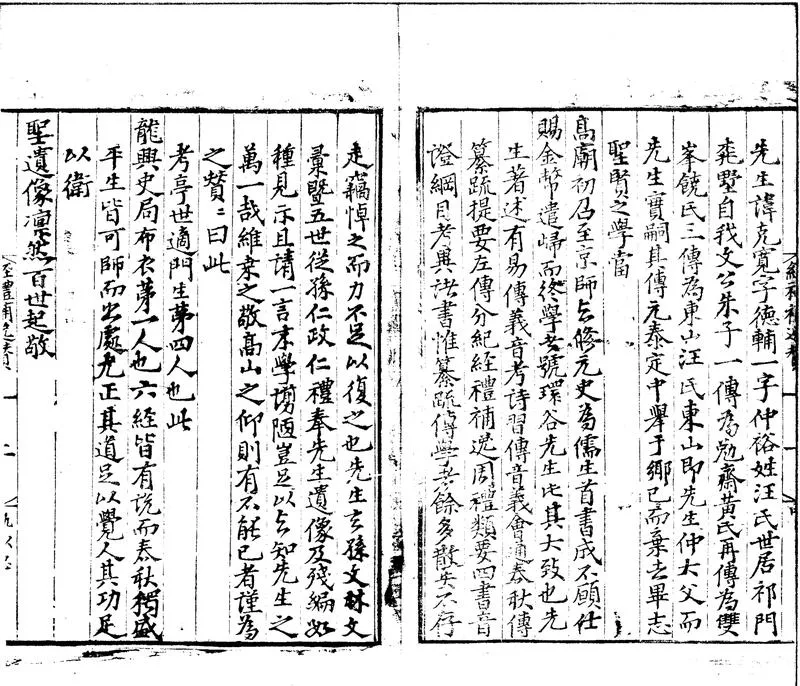 先生諱克寬字德輔一字仲裕姓汪氏世居祁門
桃墅自我文公朱子一傳為勉齋黃氏再傳為雙
峯饒氏三傳為東山汪氏東山即先生仲大父而
先生實嗣其傳元泰定中舉于鄉已而棄去畢志
聖賢之學當
高廟初召至京師與修元史為儒生首書成不願仕
賜金幣遣歸而終學者號環谷先生此其大致也先
生著述有易傳義音考詩習傳音義會通春秋傳
纂疏提要左傳分紀經禮補逸周禮類要四書音
證綱目考異諸書惟纂疏傳學者餘多散失不存
走竊悼之而力不足以復之也先生玄孫文林文
彙暨五世從孫仁政仁禮奉先生遺像及殘編如
種見示且請一言末學謭陋豈足以與知先生之
萬一哉維桑之敬高山之仰則有不能已者謹為
之贊贊曰此
考亭世適門生第四人也此
龍興史局布衣第一人也六經皆有說而春秋獨盛
平生皆可師而出處尤正其道足以覺人其功足
以衛
聖遺像凜然百世起敬
經禮補逸贊 一 二